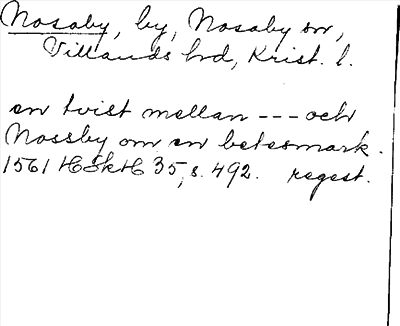 Nosaby, by, Nosaby sn,
Villands hd, Krist. l.
en tvist mellan --- och
Nossby om en betesmark.
1561 HSkH 35, s. 492. regest.